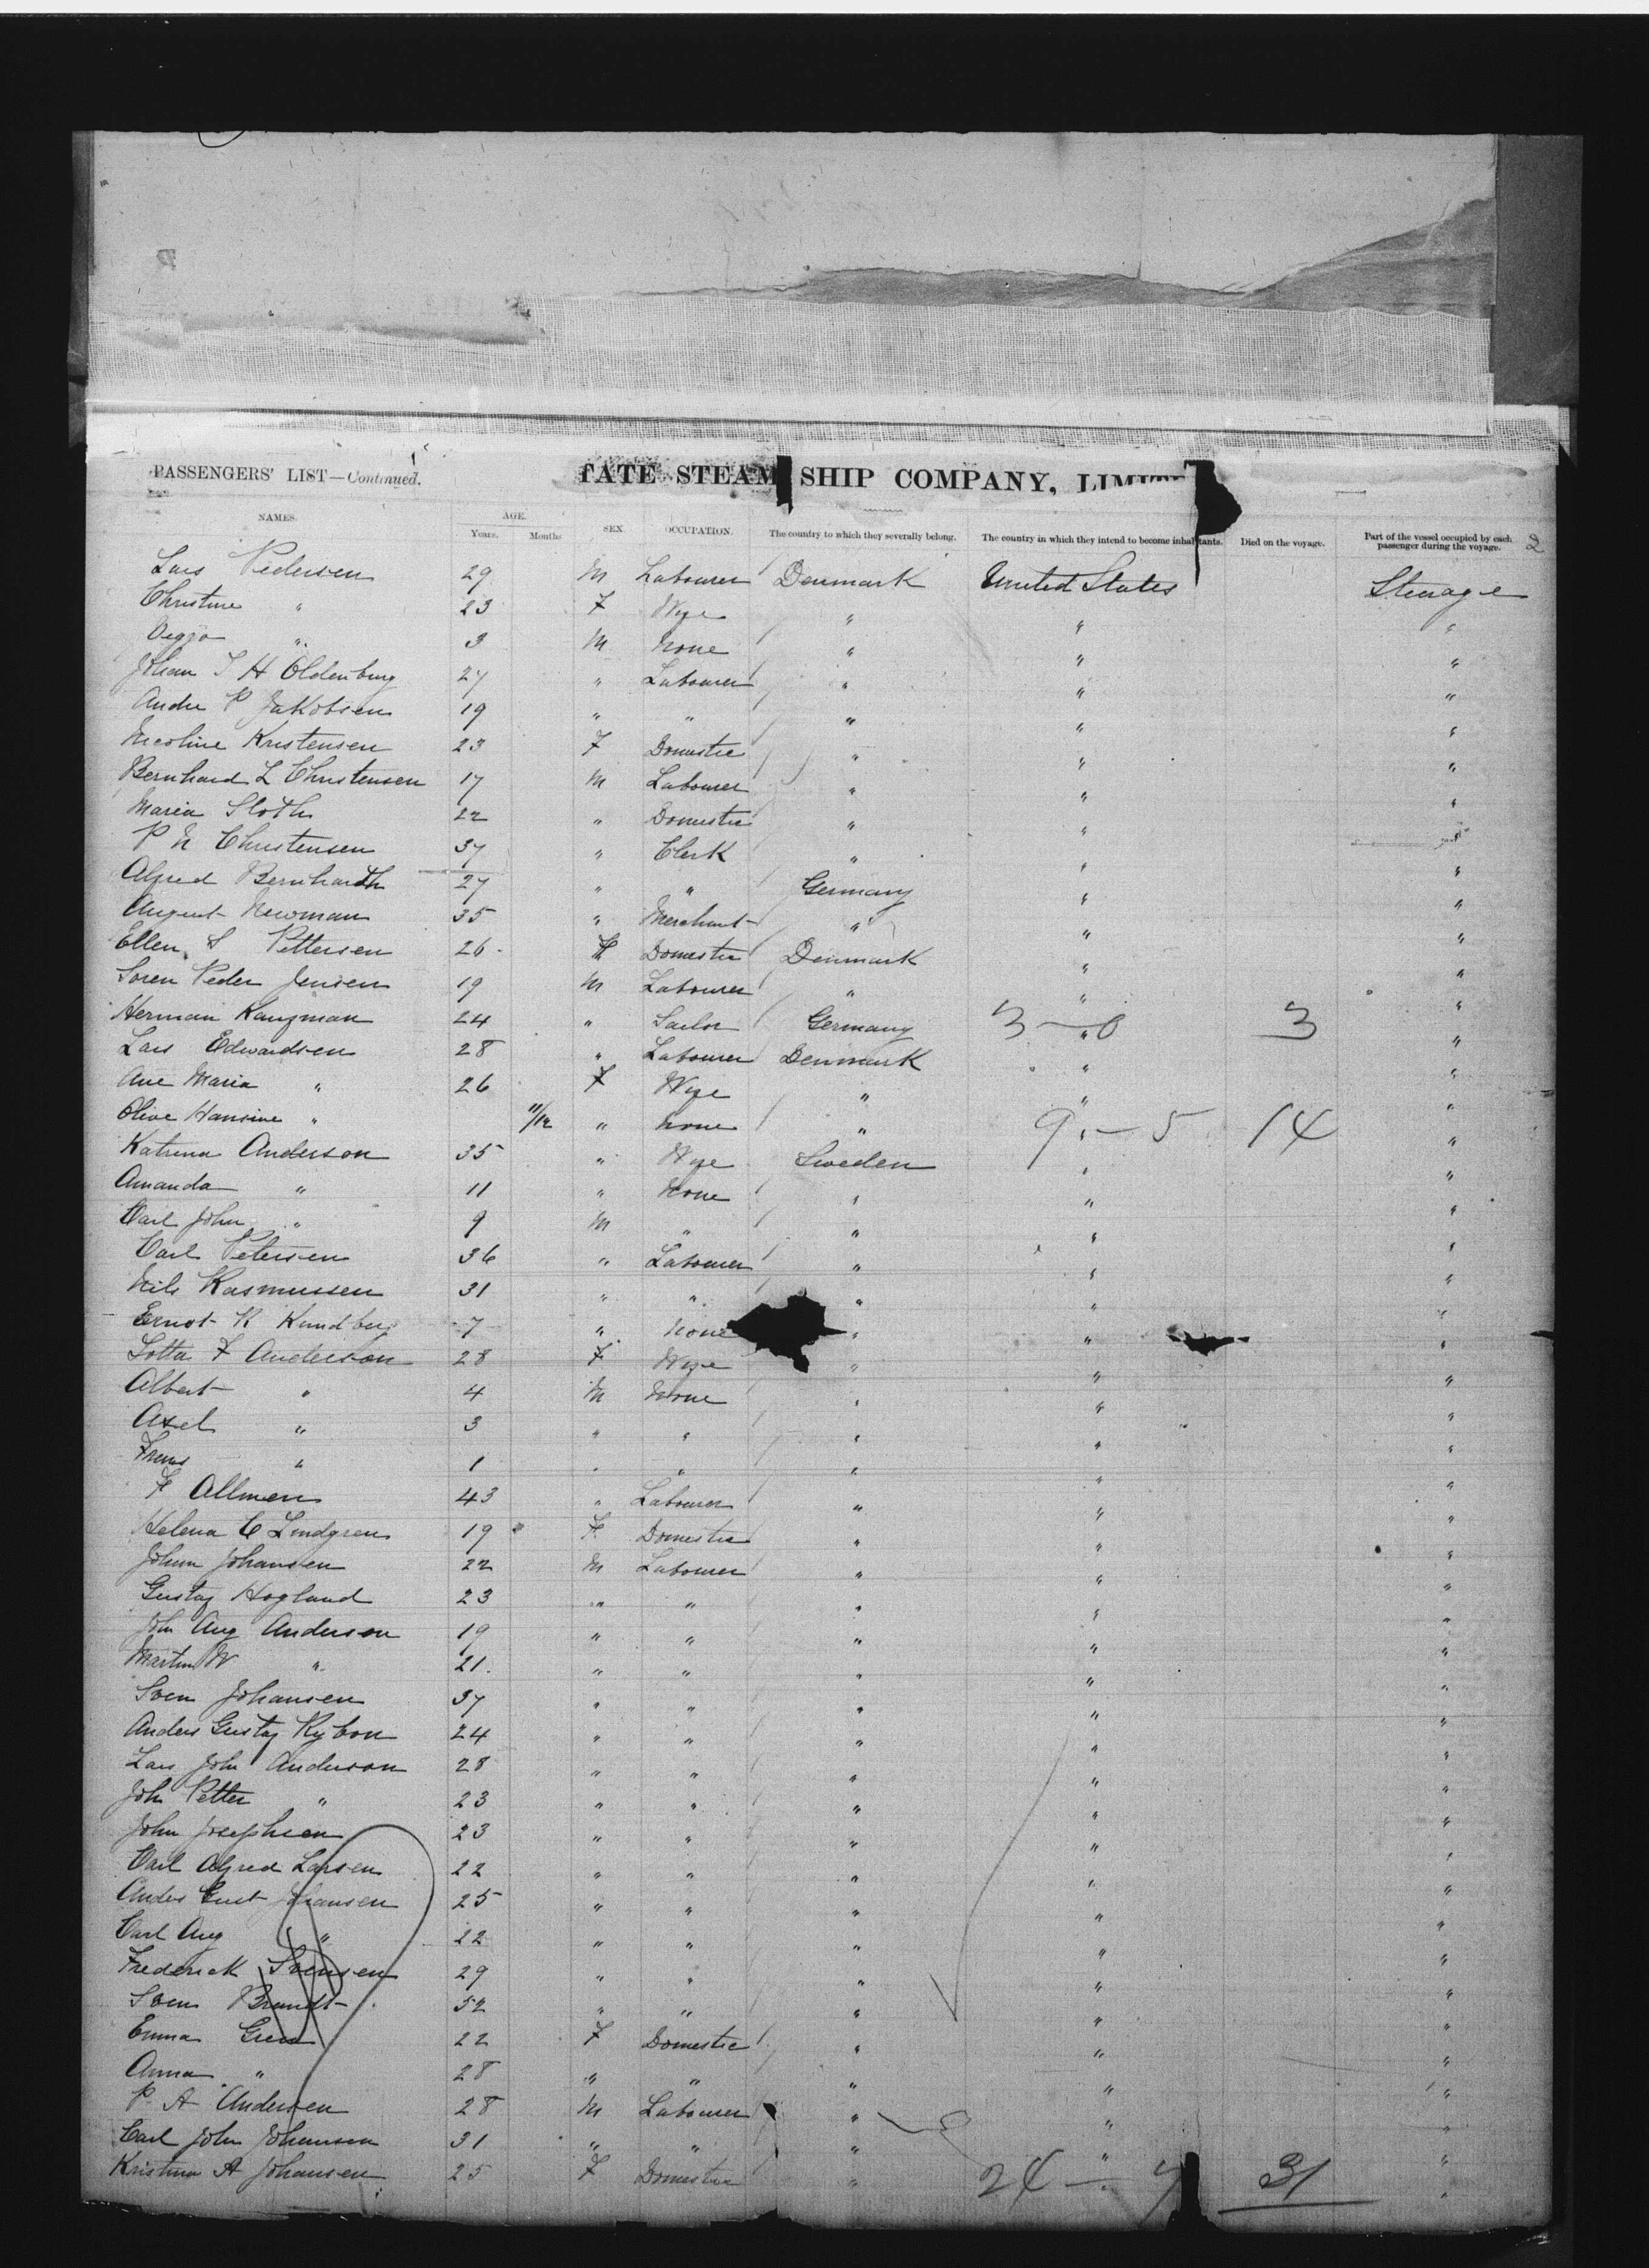 PASSENGERS' LIST—Continued. TATE STEAM SHIP COMPANY, LIMITE
NAMES. AGE. SEX OCCUPATION. The country to which they severally belong. The country in which they intend to become inhabitants. Died on the voyage. Part of the vessel occupied by each passenger during the voyage. 2
Years. Months
Lars Pedersen 29 M Labourer Denmark United States Steerage
Christine " 23 F Wife " " "
" 3 M None " " "
Johan H Oldenburg 27 " Labourer " " "
Andr P Jakobsen 19 " " " " "
Nicoline Kristensen 23 F Domestic " " "
Bernhard L Christensen 17 M Labourer " " "
Maria Sloth 22 " Domestic " " "
P N Christensen 37 " Clerk " " "
Alfred Bernhardth 27 " " Germany " "
August Newman 35 " Merchant " " "
Ellen S Pettersen 26 F Domestic Denmark " "
Soren Peder Jensen 19 M Labourer " " "
Herman Kaufman 24 " Sailor Germany 3 — 0 " 3 "
Lars Edwardsen 28 " Labourer Denmark " "
Ane Maria " 26 F Wife " " "
Olive Hansine " 11/12 " None " 9 " — 5 14 "
Katrina Anderson 35 " Wife Sweden " "
Amanda " 11 " None " " "
Carl John " 9 M " " " "
Carl Petersen 36 " Labourer " " "
Nils Rasmussen 31 " " " " "
Ernst K Kundberg 7 " None " " "
Lotta F Anderson 28 F Wife " " "
Albert " 4 M None " " "
Axel " 3 " " " " "
Frans " 1 " " " " "
F Allmen 43 " Labourer " " "
Helena C Lindgren 19 F Domestic " " "
Johan Johansen 22 M Labourer " " "
Gustaf Hogland 23 " " " " "
John Aug Anderson 19 " " " " "
Martin W " 21 " " " " "
Sven Johansen 37 " " " " "
Anders Gustaf Rybon 24 " " " " "
Lars John Anderson 28 " " " " "
John Petter " 23 " " " " "
John Josephson 23 " " " " "
Carl Alfred Larsen 22 " " " " "
Anders Gust Johansen 25 " " " " "
Carl Aug " 22 " " " " "
Frederick Svensen 29 " " " " "
Sven Brandt 52 " " " " "
Emma 22 F Domestic " " "
Anna " 28 " " " " "
P A Andersen 28 M Labourer " " "
Carl John Johansen 31 " " " " "
Kristina A Johansen 25 F Domestic " 24 — 7 31 "